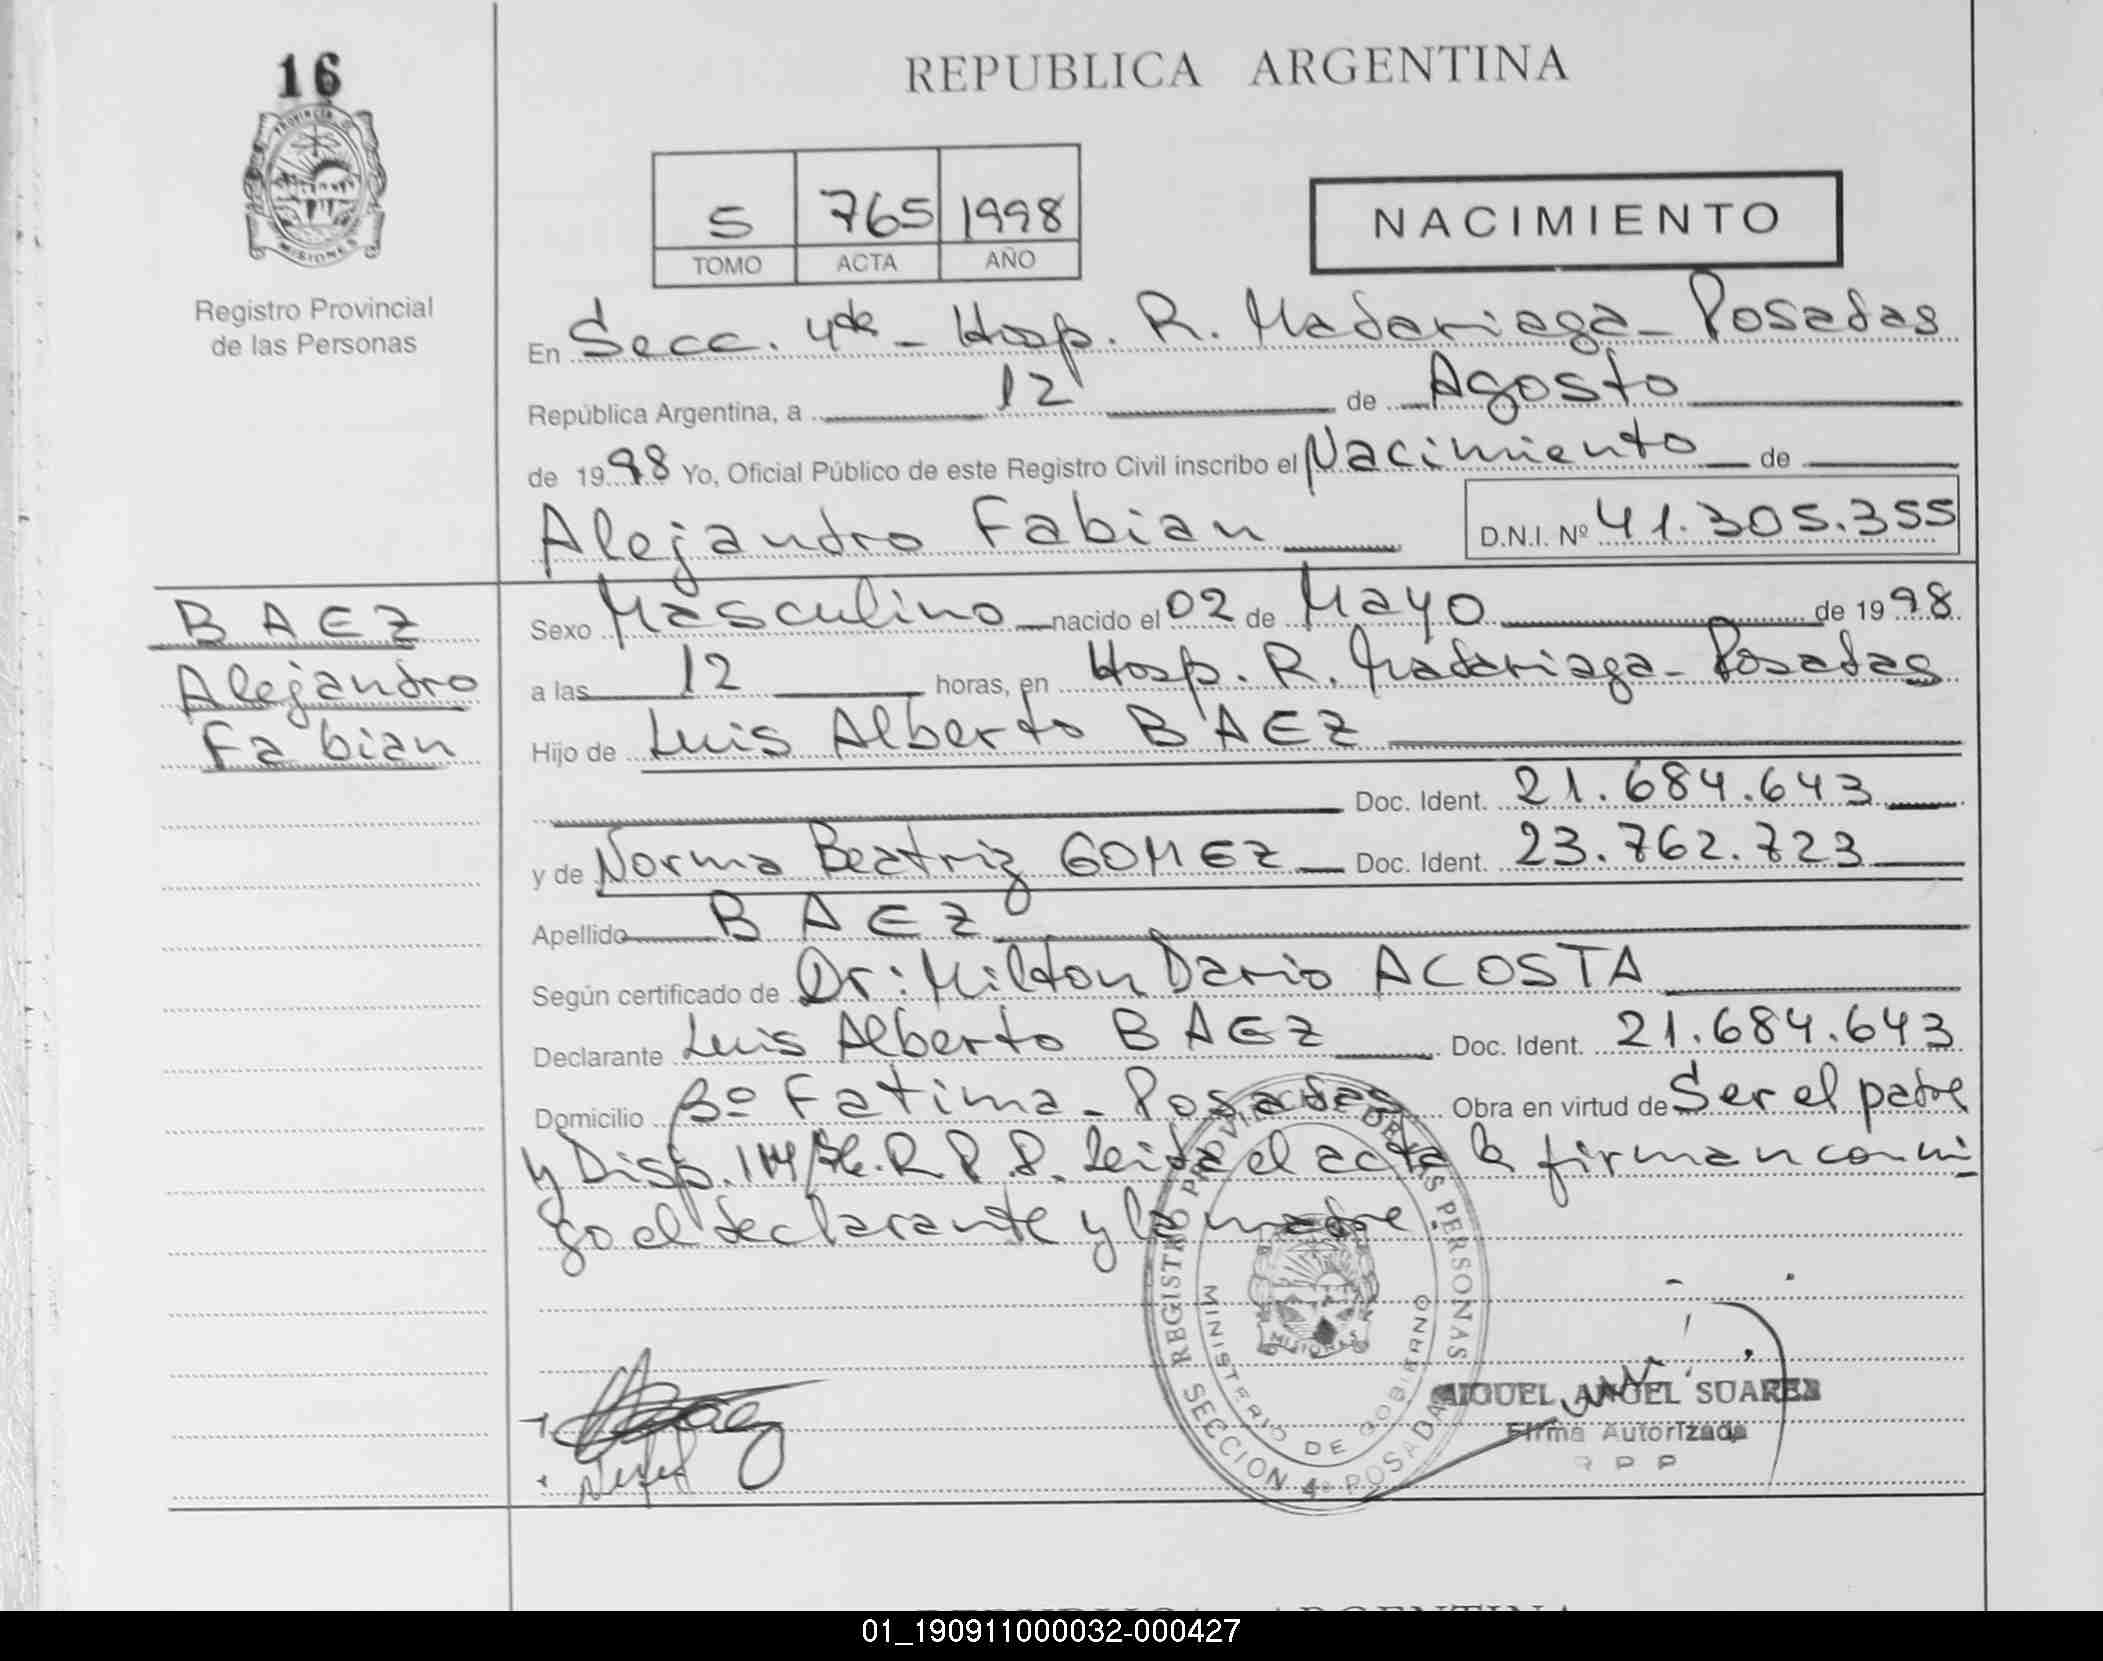 16
PROVINCIA D
MISIONES
Registro Provincial
de las Personas
REPUBLICA ARGENTINA
5 765 1998
TOMO ACTA AÑO
NACIMIENTO
En Secc. 4ta - Hosp. R. Madariaga - Posadas
República Argentina, a 12 de Agosto
de 1998 Yo, Oficial Público de este Registro Civil inscribo el Nacimiento de
Alejandro Fabian D.N.I. Nº 41.305.355
BAEZ
Alejandro
Fabian
Sexo Masculino nacido el 02 de Mayo de 1998
a las 12 horas, en Hosp. R. Madariaga - Posadas
Hijo de Luis Alberto BAEZ
Doc. Ident. 21.684.643
y de Norma Beatriz GOMEZ Doc. Ident. 23.762.723
Apellido BAEZ
Según certificado de Dr: Milton Dario ACOSTA
Declarante Luis Alberto BAEZ Doc. Ident. 21.684.643
Domicilio Bº Fatima - Posadas Obra en virtud de Ser el padre
y Disp. R.P.P. Leida el acta la firman conmi-
go el declarante y la madre.
REGISTRO PROVINCIAL DE LAS PERSONAS
MINISTERIO DE GOBIERNO
MISIONES
SECCION 4º POSADAS
Baez
MIGUEL ANGEL SUAREZ
Firma Autorizada
R P P
REPUBLICA ARGENTINA
01_190911000032-000427